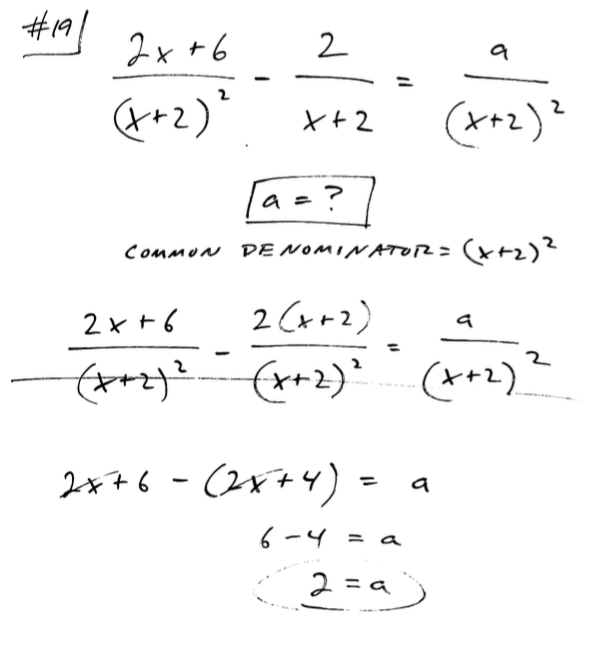 #19
(2x+6)/(x+2)² - 2/(x+2) = a/(x+2)²
a = ?
COMMON DENOMINATOR = (x+2)²
(2x+6)/(x+2)² - 2(x+2)/(x+2)² = a/(x+2)²
2x+6 - (2x+4) = a
6-4 = a
2 = a